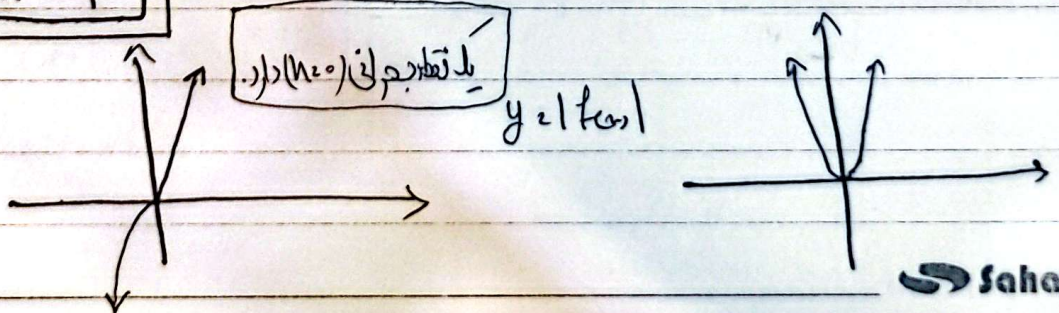 یک نقطه بحرانی (x=0) دارد.
y = |f(x)|
Saha